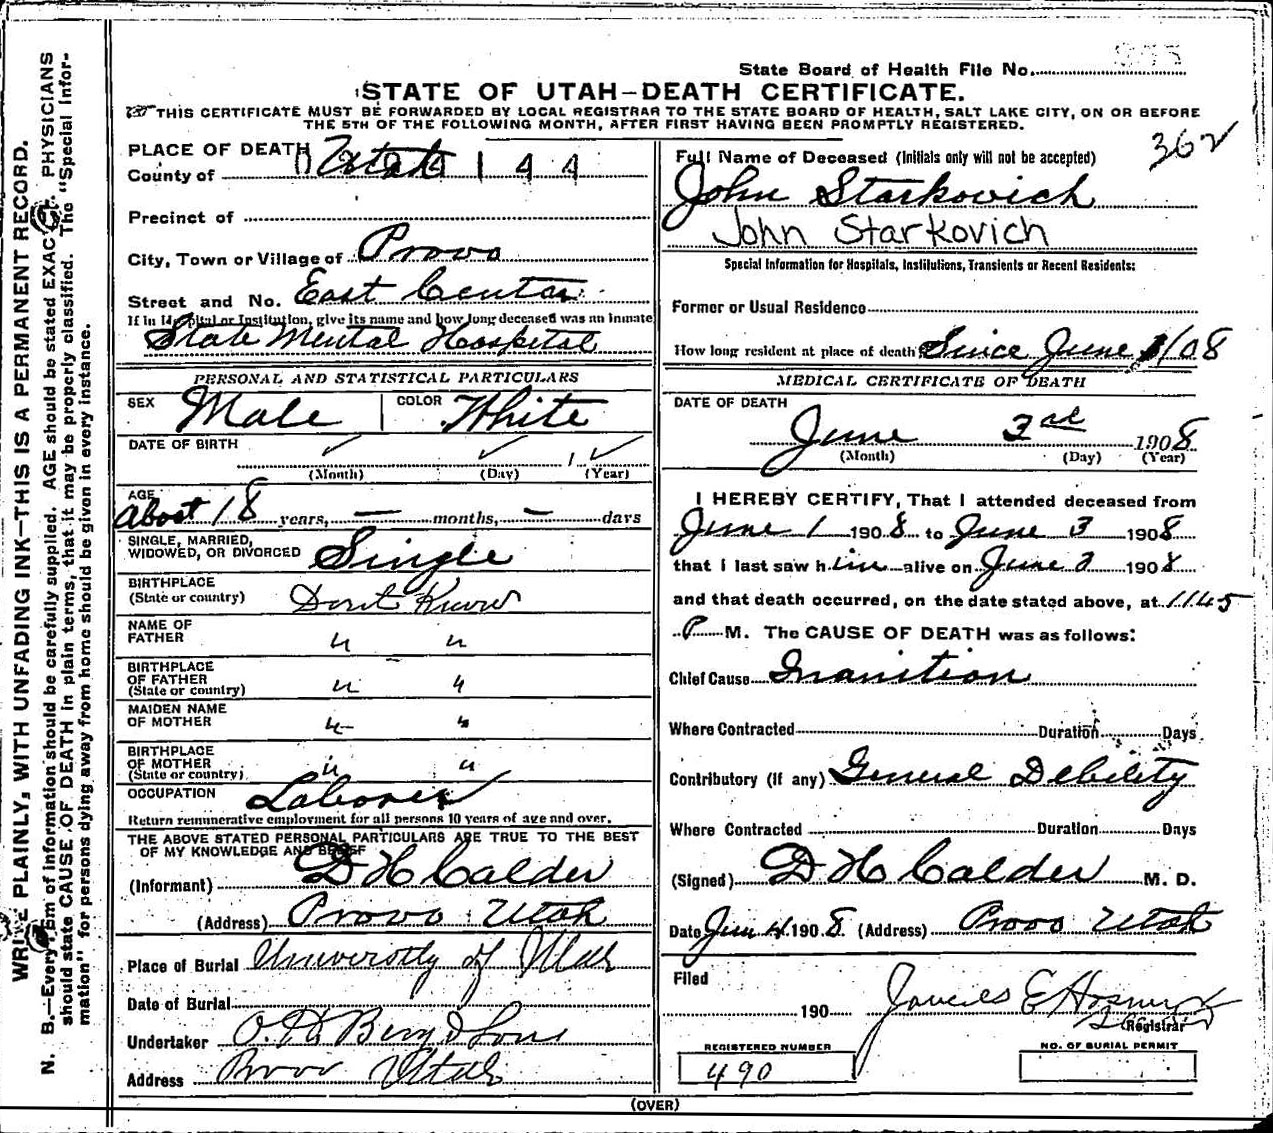 State Board of Health File No.
STATE OF UTAH—DEATH CERTIFICATE.
THIS CERTIFICATE MUST BE FORWARDED BY LOCAL REGISTRAR TO THE STATE BOARD OF HEALTH, SALT LAKE CITY, ON OR BEFORE
THE 5TH OF THE FOLLOWING MONTH, AFTER FIRST HAVING BEEN PROMPTLY REGISTERED.
362
WRITE PLAINLY, WITH UNFADING INK—THIS IS A PERMANENT RECORD.
N. B.—Every item of information should be carefully supplied. AGE should be stated EXACTLY. PHYSICIANS
should state CAUSE OF DEATH in plain terms, that it may be properly classified. The "Special Infor-
mation" for persons dying away from home should be given in every instance.
PLACE OF DEATH
County of Utah 144
Precinct of
City, Town or Village of Provo
Street and No. East Center
If in Hospital or Institution, give its name and how long deceased was an inmate
State Mental Hospital
PERSONAL AND STATISTICAL PARTICULARS
SEX Male COLOR White
DATE OF BIRTH
1
(Month) (Day) (Year)
AGE
About 18 years, — months, — days
SINGLE, MARRIED,
WIDOWED, OR DIVORCED Single
BIRTHPLACE
(State or country) Dont Know
NAME OF
FATHER " "
BIRTHPLACE
OF FATHER
(State or country) " "
MAIDEN NAME
OF MOTHER " "
BIRTHPLACE
OF MOTHER
(State or country) " "
OCCUPATION Laborer
Return remunerative employment for all persons 10 years of age and over.
THE ABOVE STATED PERSONAL PARTICULARS ARE TRUE TO THE BEST
OF MY KNOWLEDGE AND BELIEF
(Informant) D H Calder
(Address) Provo Utah
Place of Burial University of Utah
Date of Burial
Undertaker O. H. Berg & Sons
Address Provo Utah
Full Name of Deceased (Initials only will not be accepted)
John Starkovich
John Starkovich
Special Information for Hospitals, Institutions, Transients or Recent Residents:
Former or Usual Residence
How long resident at place of death Since June 1/08
MEDICAL CERTIFICATE OF DEATH
DATE OF DEATH
June 3rd 1908
(Month) (Day) (Year)
I HEREBY CERTIFY, That I attended deceased from
June 1 1908 to June 3 1908
that I last saw him alive on June 3 1908
and that death occurred, on the date stated above, at 11.45
P M. The CAUSE OF DEATH was as follows:
Chief Cause Inanition
Where Contracted Duration Days
Contributory (if any) General Debility
Where Contracted Duration Days
(Signed) D H Calder M. D.
Date Jun 4 1908. (Address) Provo Utah
Filed
190
Registrar
REGISTERED NUMBER
490
NO. OF BURIAL PERMIT
(OVER)